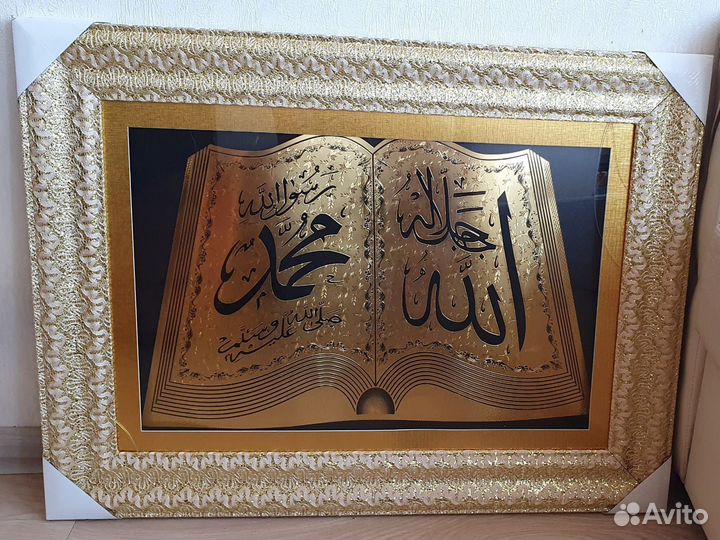 الله
جل جلاله
رسول الله
محمد
صلى الله عليه وسلم
Avito